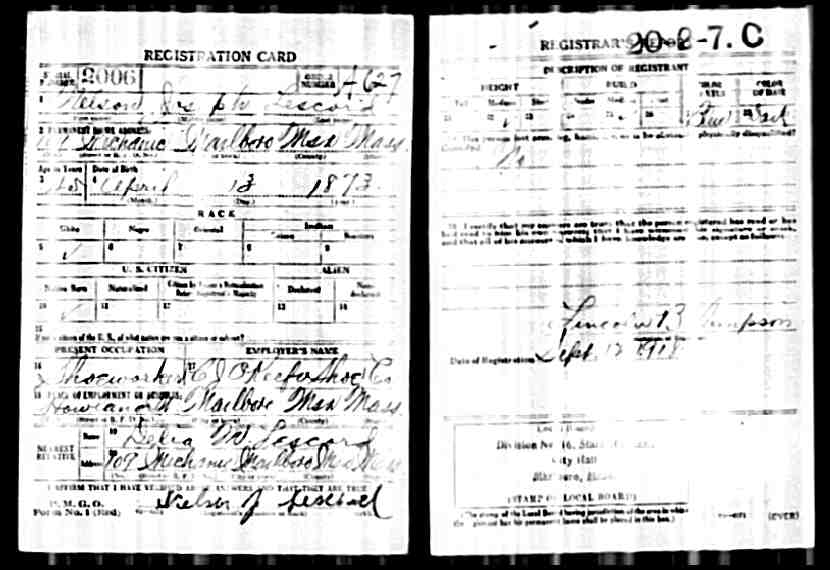 REGISTRATION CARD
SERIAL NUMBER 2006
ORDER NUMBER A 627
1 Nelson Lescord
2 PERMANENT HOME ADDRESS:
109 Mechanic Marlboro Msx Mass.
Age in Years Date of Birth
3 45 4 April 13 1873
(Month.) (Day.) (Year.)
RACE
White Negro Oriental Indian
Citizen
5 6 7 8 9
U. S. CITIZEN ALIEN
Native Born Naturalized Declarant Non-declarant
10 11 12 13 14
15
If not a citizen of the U. S., of what nation are you a citizen or subject?
PRESENT OCCUPATION EMPLOYER'S NAME
16 Shoeworker 17 C J O'Keefe Shoe Co
18 PLACE OF EMPLOYMENT OR BUSINESS:
Marlboro Msx Mass.
NEAREST RELATIVE Name 19 Delia M Lescord
Address 20 109 Mechanic Marlboro Msx Mass
I AFFIRM THAT I HAVE VERIFIED ABOVE ANSWERS AND THAT THEY ARE TRUE
P. M. G. O.
Form No. 1 (Red) Nelson J
REGISTRAR'S REPORT
20-2-7. C
DESCRIPTION OF REGISTRANT
HEIGHT BUILD COLOR OF EYES COLOR OF HAIR
Tall Medium Short Slender Medium Stout
21 22 23 24 25 26 27 Blue 28 Dark
29 Has person lost arm, leg, hand, eye, or is he obviously physically disqualified?
No
30 I certify that my answers are true; that the person registered has read or has
had read to him his own answers; that I have witnessed his signature or mark,
and that all of his answers of which I have knowledge are true, except as follows:
Lincoln B Simpson
Date of Registration Sept. 12 1918
Local Board
Division No. 16, State of Mass.
City Hall
Marlboro, Mass.
(STAMP OF LOCAL BOARD)
(The stamp of the Local Board having jurisdiction of the area in which
the registrant has his permanent home shall be placed in this box.)
(OVER)